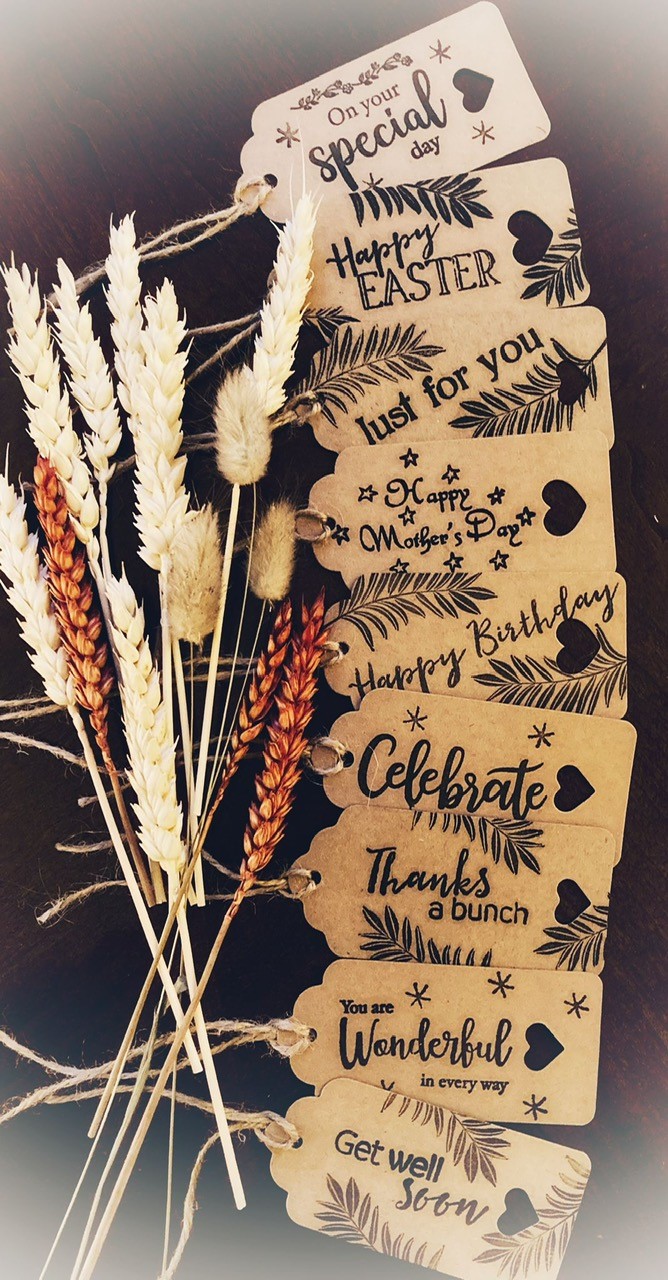 On your
special
day
Happy
EASTER
Just for you
Happy
Mother's Day
Happy Birthday
Celebrate
Thanks
a bunch
You are
Wonderful
in every way
Get well
soon